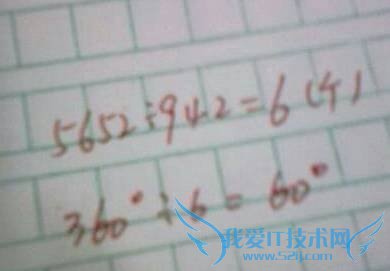 5652÷942=6(个)
360°÷6=60°
我爱IT技术网
www.52ij.com